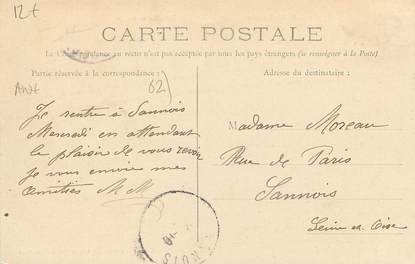 12€
CARTE POSTALE
La Correspondance au recto n'est pas acceptée par tous les pays étrangers (se renseigner à la Poste)
Partie réservée à la correspondance :
Adresse du destinataire :
62)
Je rentre à Sannois
Mercredi en attendant
le plaisir de vous revoir
je vous envoie mes
amitiés M M
Madame Moreau
Rue de Paris
Sannois
Seine et Oise